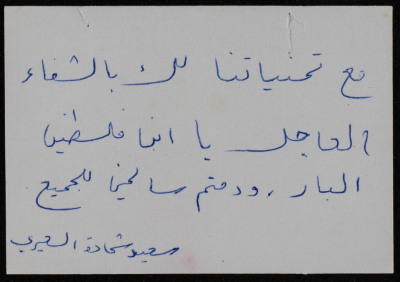 مع تمنياتنا لك بالشفاء
العاجل يا ابن فلسطين
البار، ودمتم سالمين للجميع
سعيد شحادة السعيري